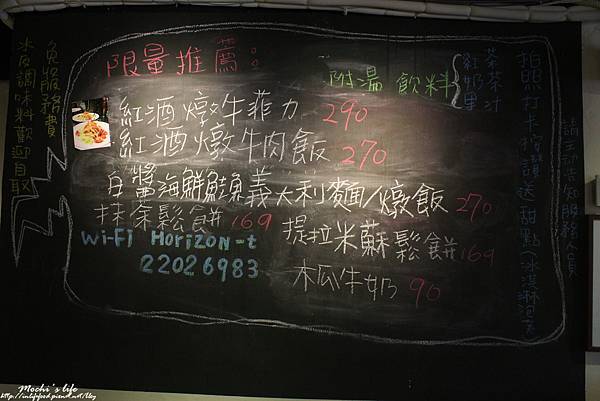 限量推薦：
附湯 飲料
紅茶
奶茶
果汁
紅酒燉牛菲力 290
紅酒燉牛肉飯 270
白醬海鮮鮭魚義大利麵/燉飯 270
抹茶鬆餅 169
提拉米蘇鬆餅 169
Wi-Fi Horizon-t
22026983
木瓜牛奶 90
免服務費
水及調味料歡迎自取
拍照打卡 按讚送甜點(冰淇淋泡芙
請主動告知服務人員
Mochi's life